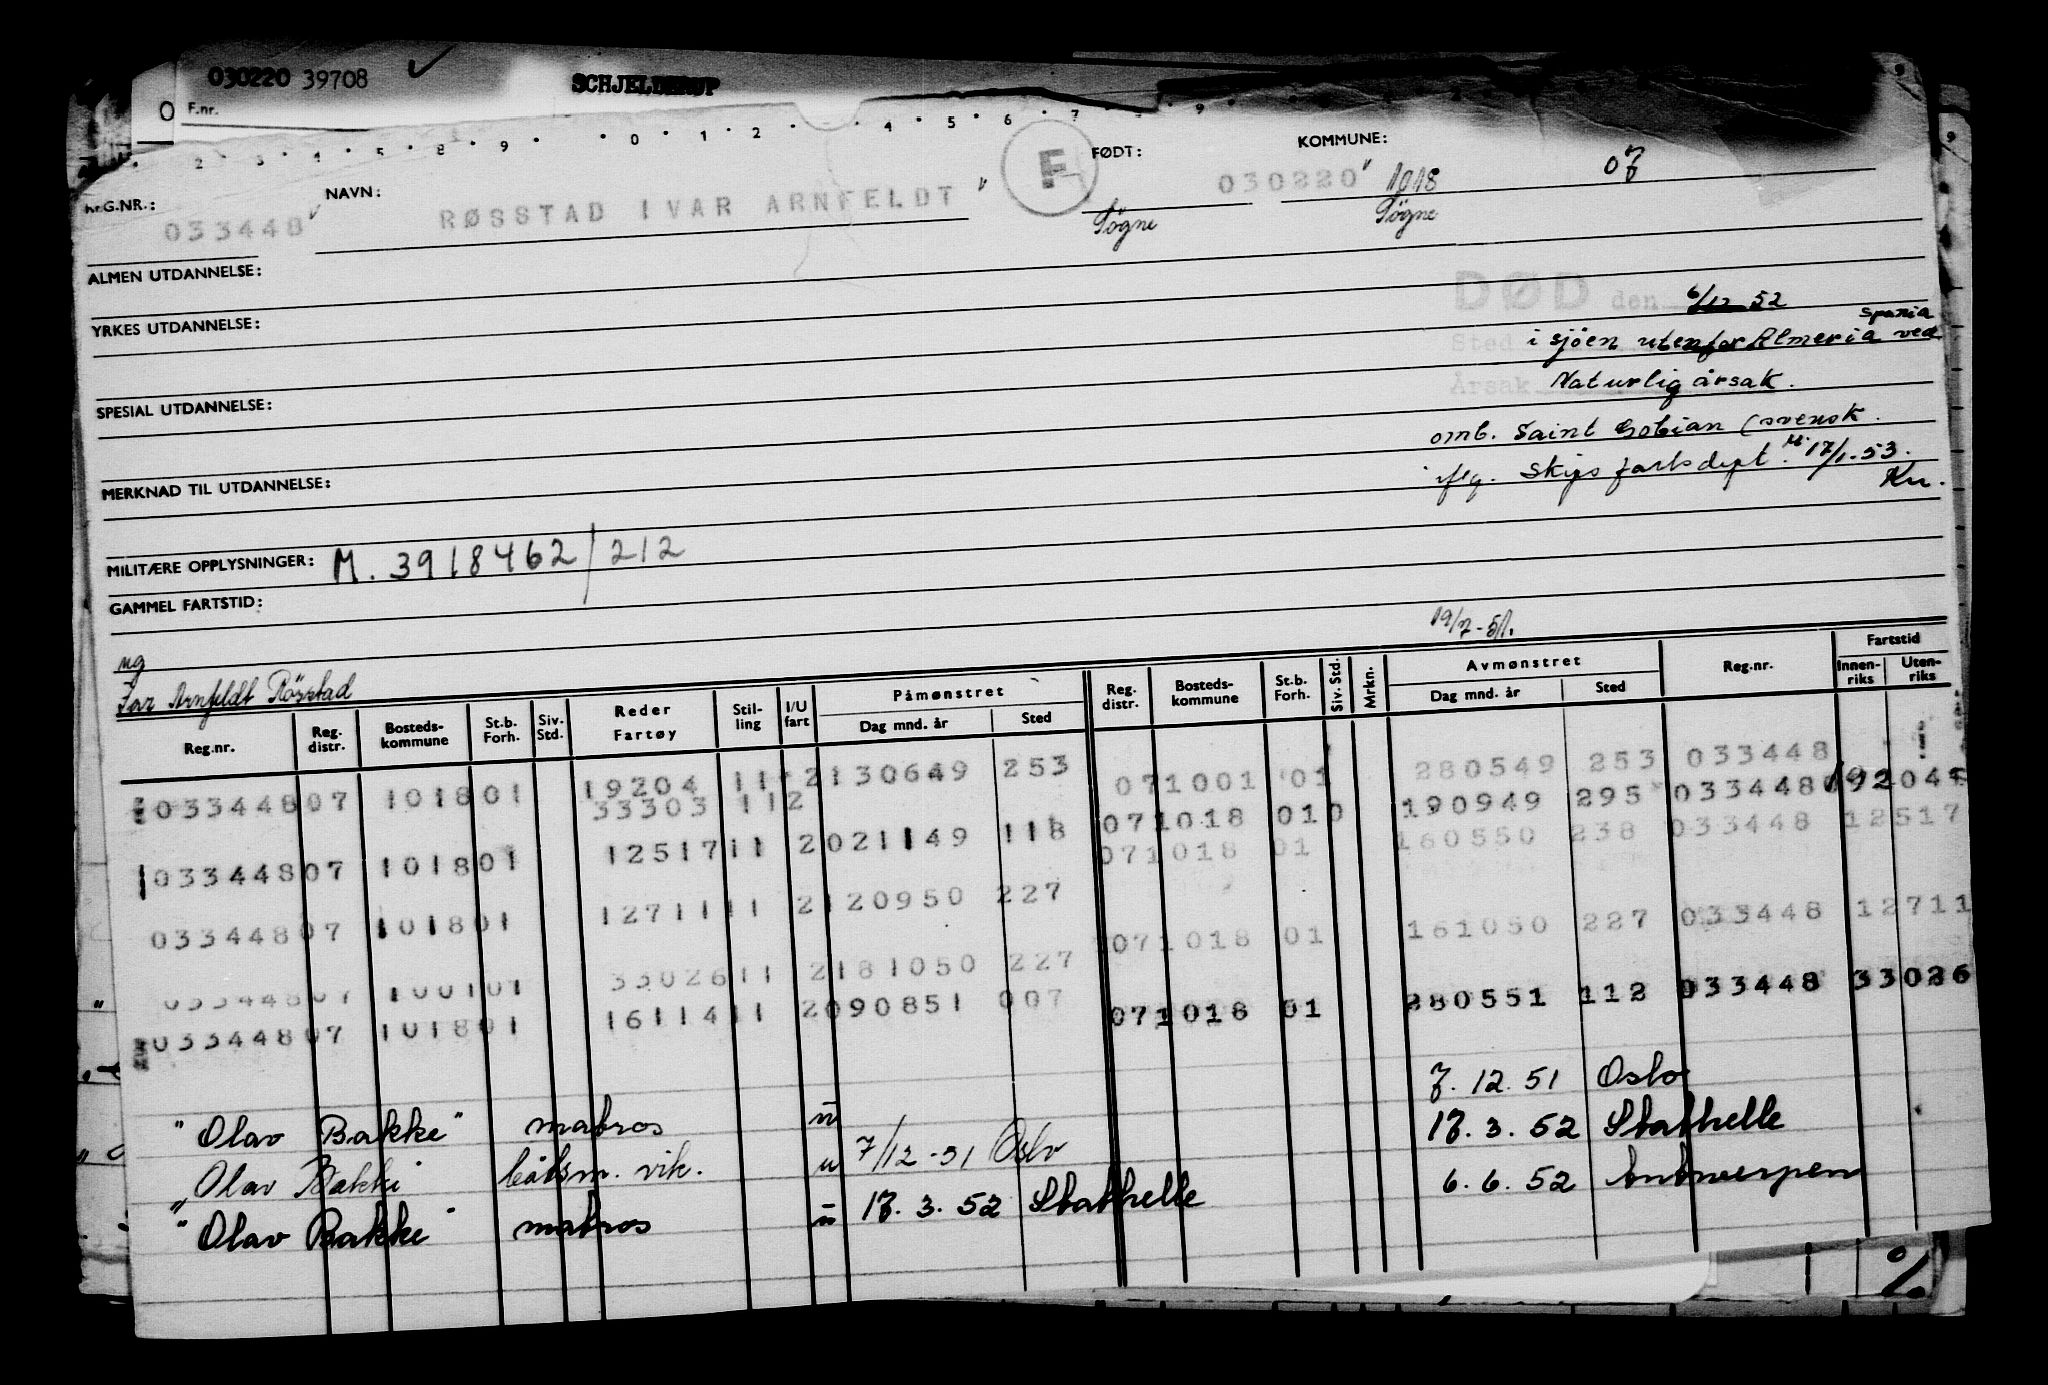 030220 39708
SCHJELDERUP
O F.nr.
2 3 4 5 8 9 0 1 2 4 5 6 7 9
REG.NR.: 033448 NAVN: RØSSTAD IVAR ARNFELDT F FØDT: 030220 KOMMUNE: 1018 07
Søgne Søgne
ALMEN UTDANNELSE:
DØD den 6/12 52
YRKES UTDANNELSE:
Spania
Sted i sjöen utenfor Almeria ved
Årsak Naturlig årsak.
SPESIAL UTDANNELSE:
omb. Saint Gobian (svensk.
iflg. Skipsfartsdept. M. 17/1-53.
MERKNAD TIL UTDANNELSE:
Kn.
MILITÆRE OPPLYSNINGER: M. 3918462/212
GAMMEL FARTSTID:
19/7-51.
ug
Ivar Arnfeldt Rösstad
Reg.nr. Reg. distr. Bosteds-kommune St.b. Forh. Siv. Std. Reder Fartøy Stil-ling I/U fart Påmønstret Dag mnd. år Sted Reg. distr. Bosteds-kommune St.b. Forh. Siv. Std. Mrkn. Avmønstret Dag mnd. år Sted Reg.nr. Fartstid Innen-riks Uten-riks
033448 07 1018 01 19204 11 2 130649 253 07 1001 01 280549 253 033448
33303 112 07 1018 010 190949 295 033448 19204
033448 07 1018 01 12517 11 2 021149 118 07 1018 01 160550 238 033448 12517
033448 07 1018 01 12711 11 2 120950 227 07 1018 01 161050 227 033448 12711
033448 07 1001 01 33026 11 2 181050 227
033448 07 1018 01 16114 11 2 090851 007 07 1018 01 280551 112 033448 33026
7. 12. 51 Oslo
"Olav Bakke" matros u 17. 3. 52 Stathelle
Olav Bakke båtsm. vik. u 7/12-51 Oslo 6. 6. 52 Antwerpen
"Olav Bakke" matros u 17. 3. 52 Stathelle